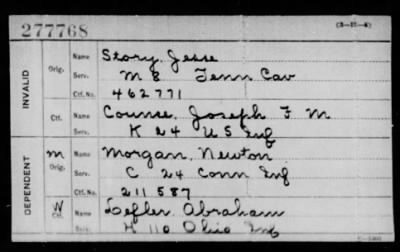 277768 (3-11-4)
INVALID
Orig. Name Story, Jesse
Serv. M 8 Tenn Cav
Ctf. No. 462771
Ctf. Name Counse, Joseph F M
Serv. K 24 U S Inf
DEPENDENT
m Orig. Name Morgan, Newton
Serv. C 24 Conn Inf
Ctf. No. 211587
W Ctf. Name Lefler, Abraham
Serv. H 110 Ohio Inf